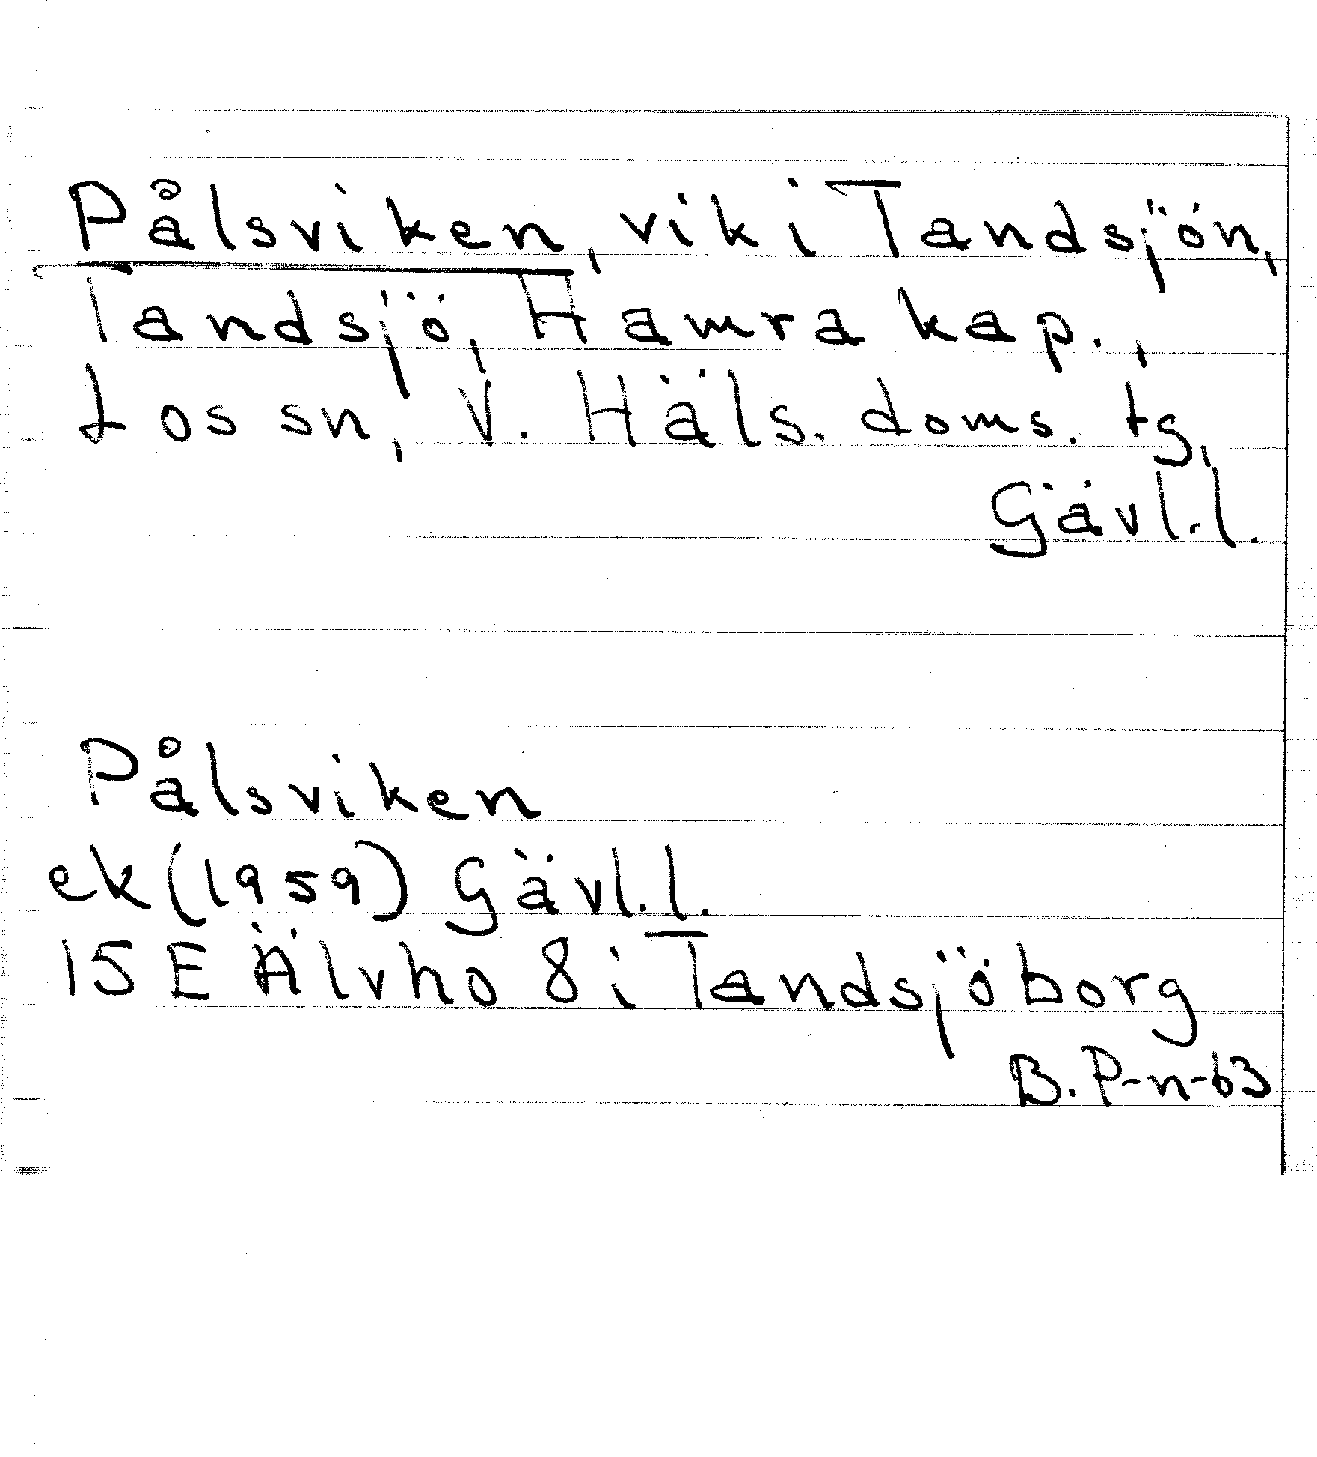 Pålsviken, vik i Tandsjön,
Tandsjö, Hamra kap.,
Los sn, V. Häls. doms. tg,
Gävl.l.
Pålsviken
ek (1959) Gävl.l.
15 E Älvho 8 i Tandsjöborg
B. P-n-63